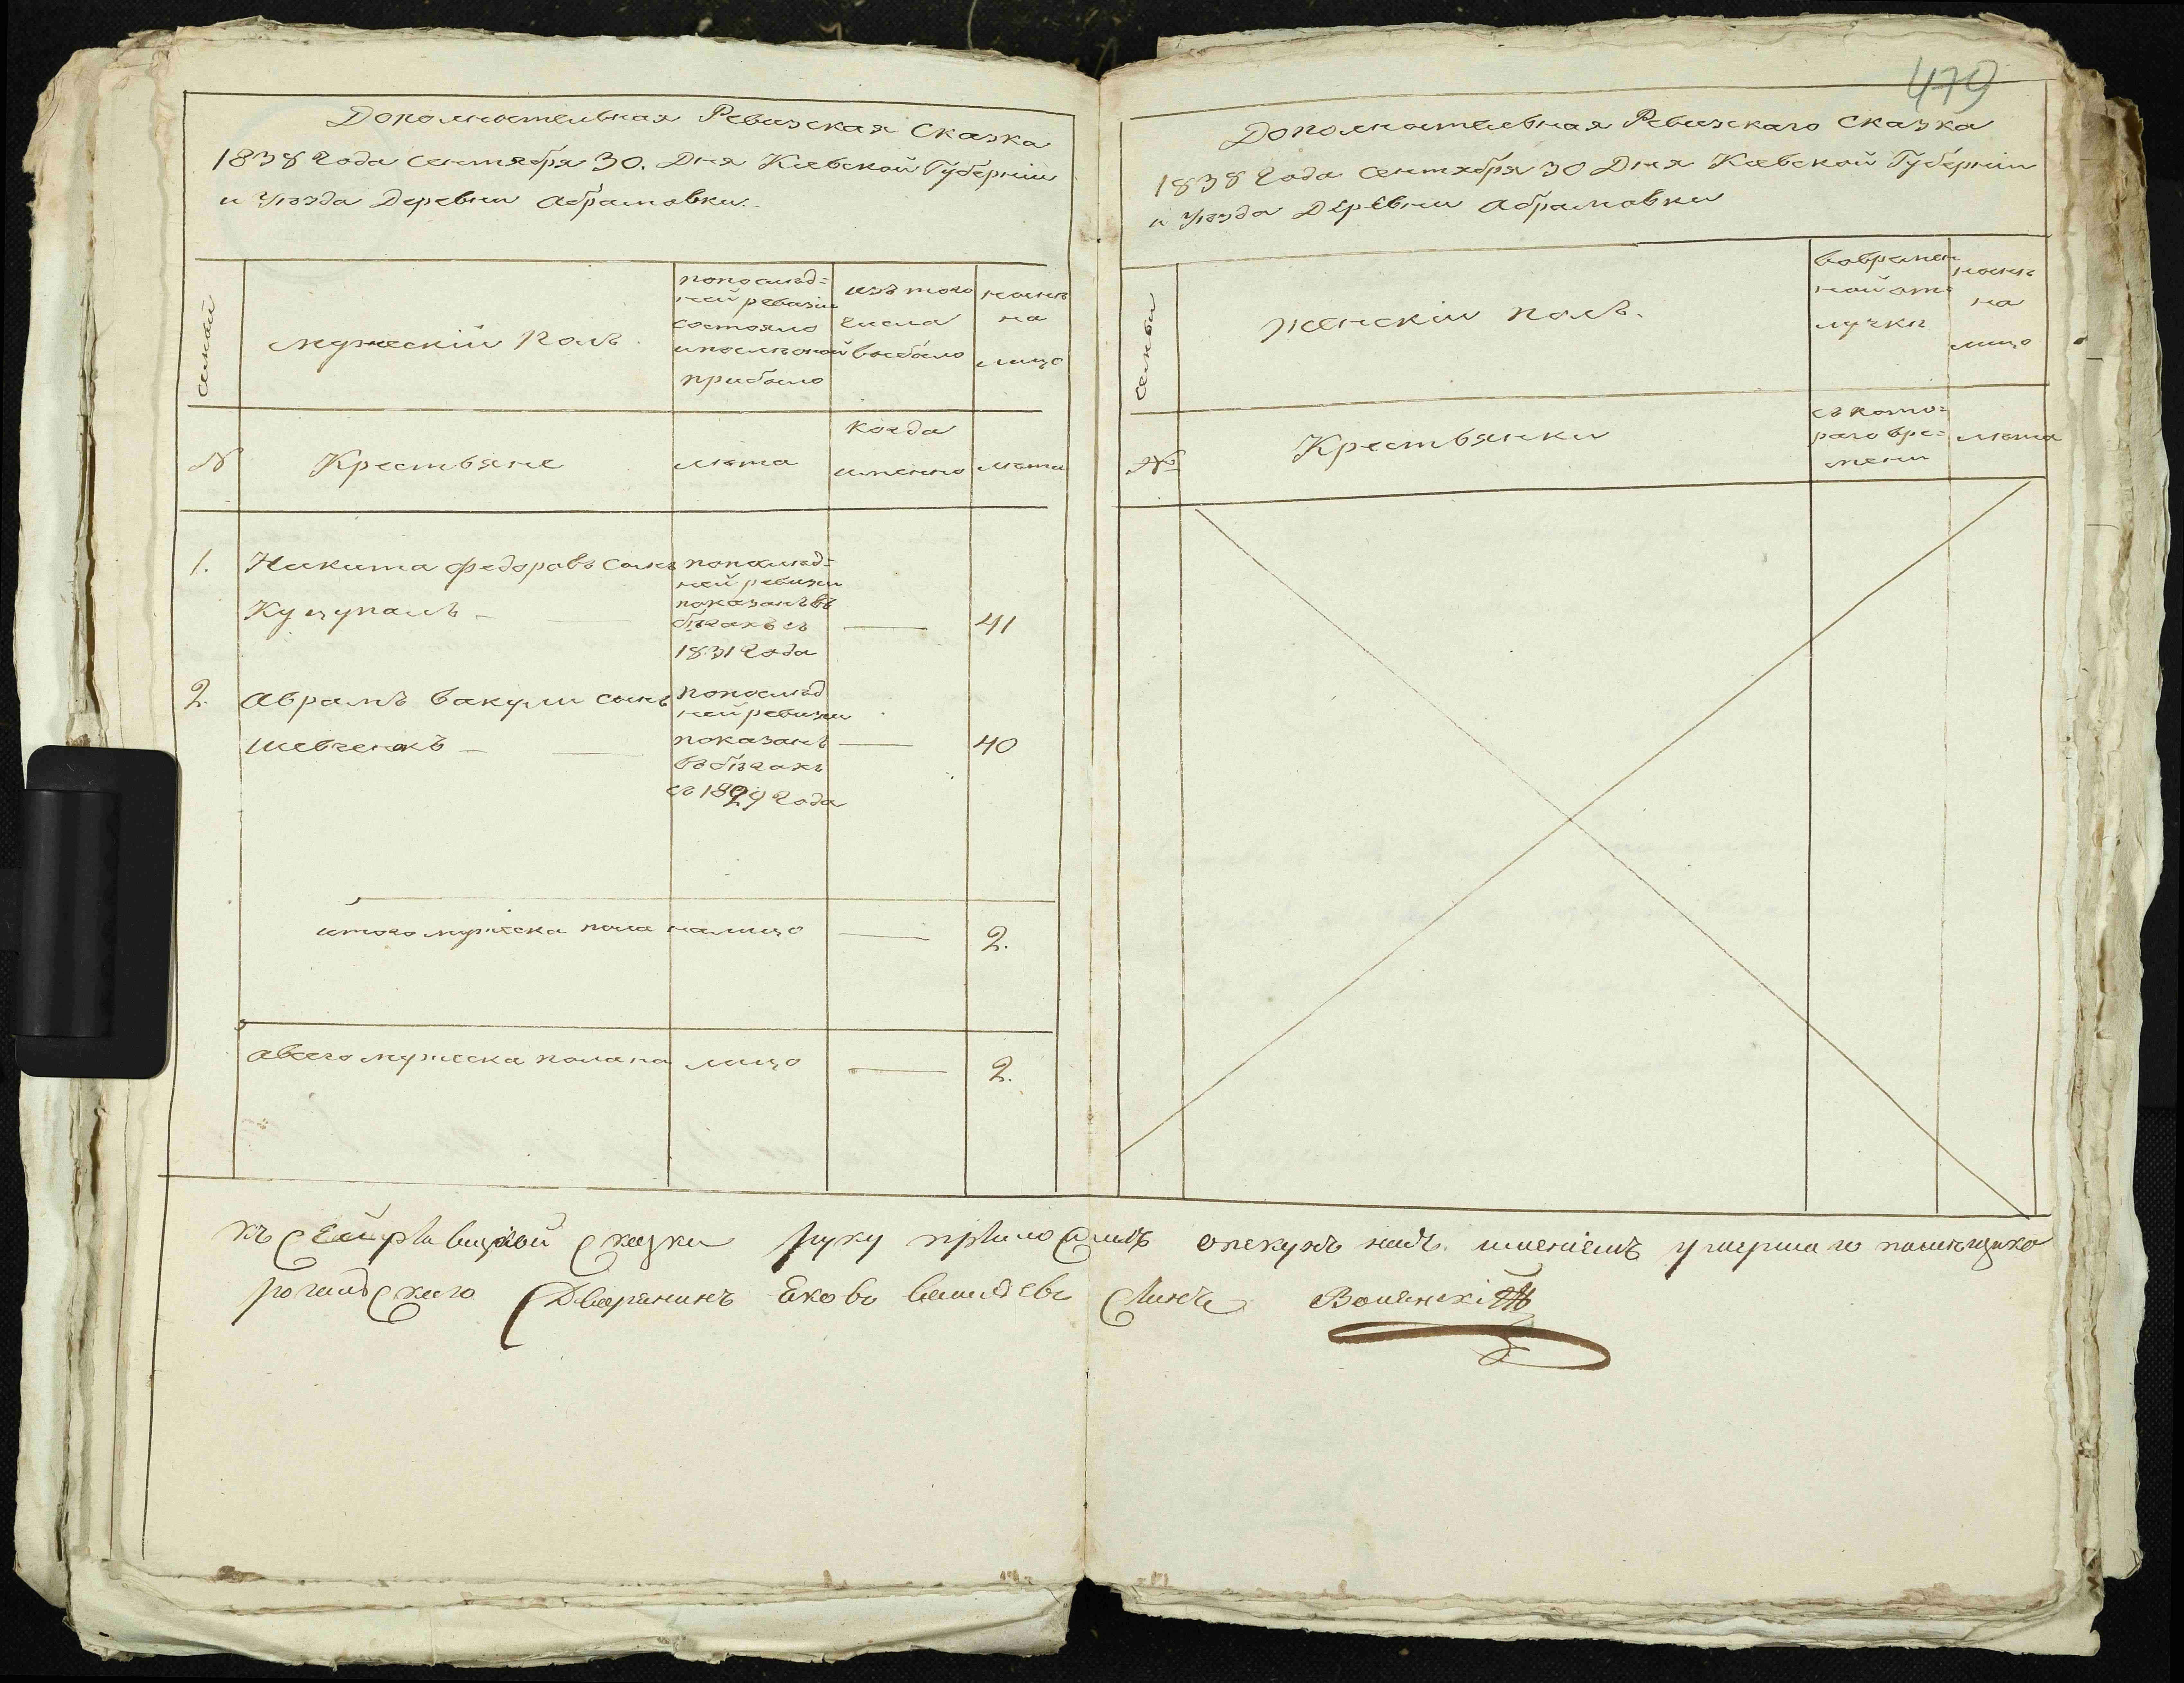 479
Дополнительная Ревизская Сказка
1838 Года Сентября 30. Дня Киевской Губерніи
и Уѣзда Деревни Абрамовки.
Семьи
Мужескій Полъ.
попослѣд=
ней ревизіи
состояло
ипослѣоной
прибыло
изъ того
числа
выбыло
нынѣ
на
лицо
№
Крестьяне
лѣта
когда
именно
лѣта
1. Никита Федоровъ Сынъ
Куцупалъ —
попослѣд=
ней ревизіи
показанъ въ
бѣгахъ съ
1831 Года
— 41
2. Абрамъ Вакули Сынъ
Шевченокъ —
попослѣд
ней ревизіи
показанъ
въ бѣгахъ
съ 1829 Года
— 40
итого мужеска пола налицо — 2.
авсего мужеска пола на лицо — 2.
Дополнительная Ревизскаго Сказка
1838 Года Сентября 30 Дня Киевской Губерніи
и Уѣзда Деревни Абрамовки
Семьи
Женскій полъ.
вовремен
ной от=
лучки
нынѣ
на
лицо
№
Крестьянки
съ кото=
раго вре=
мени
лѣта
къ Сей ревизкой Сказки руку приложилъ опекунъ надъ имениемъ умершаго помѣщика
Дворянинъ Яковъ Сынъ